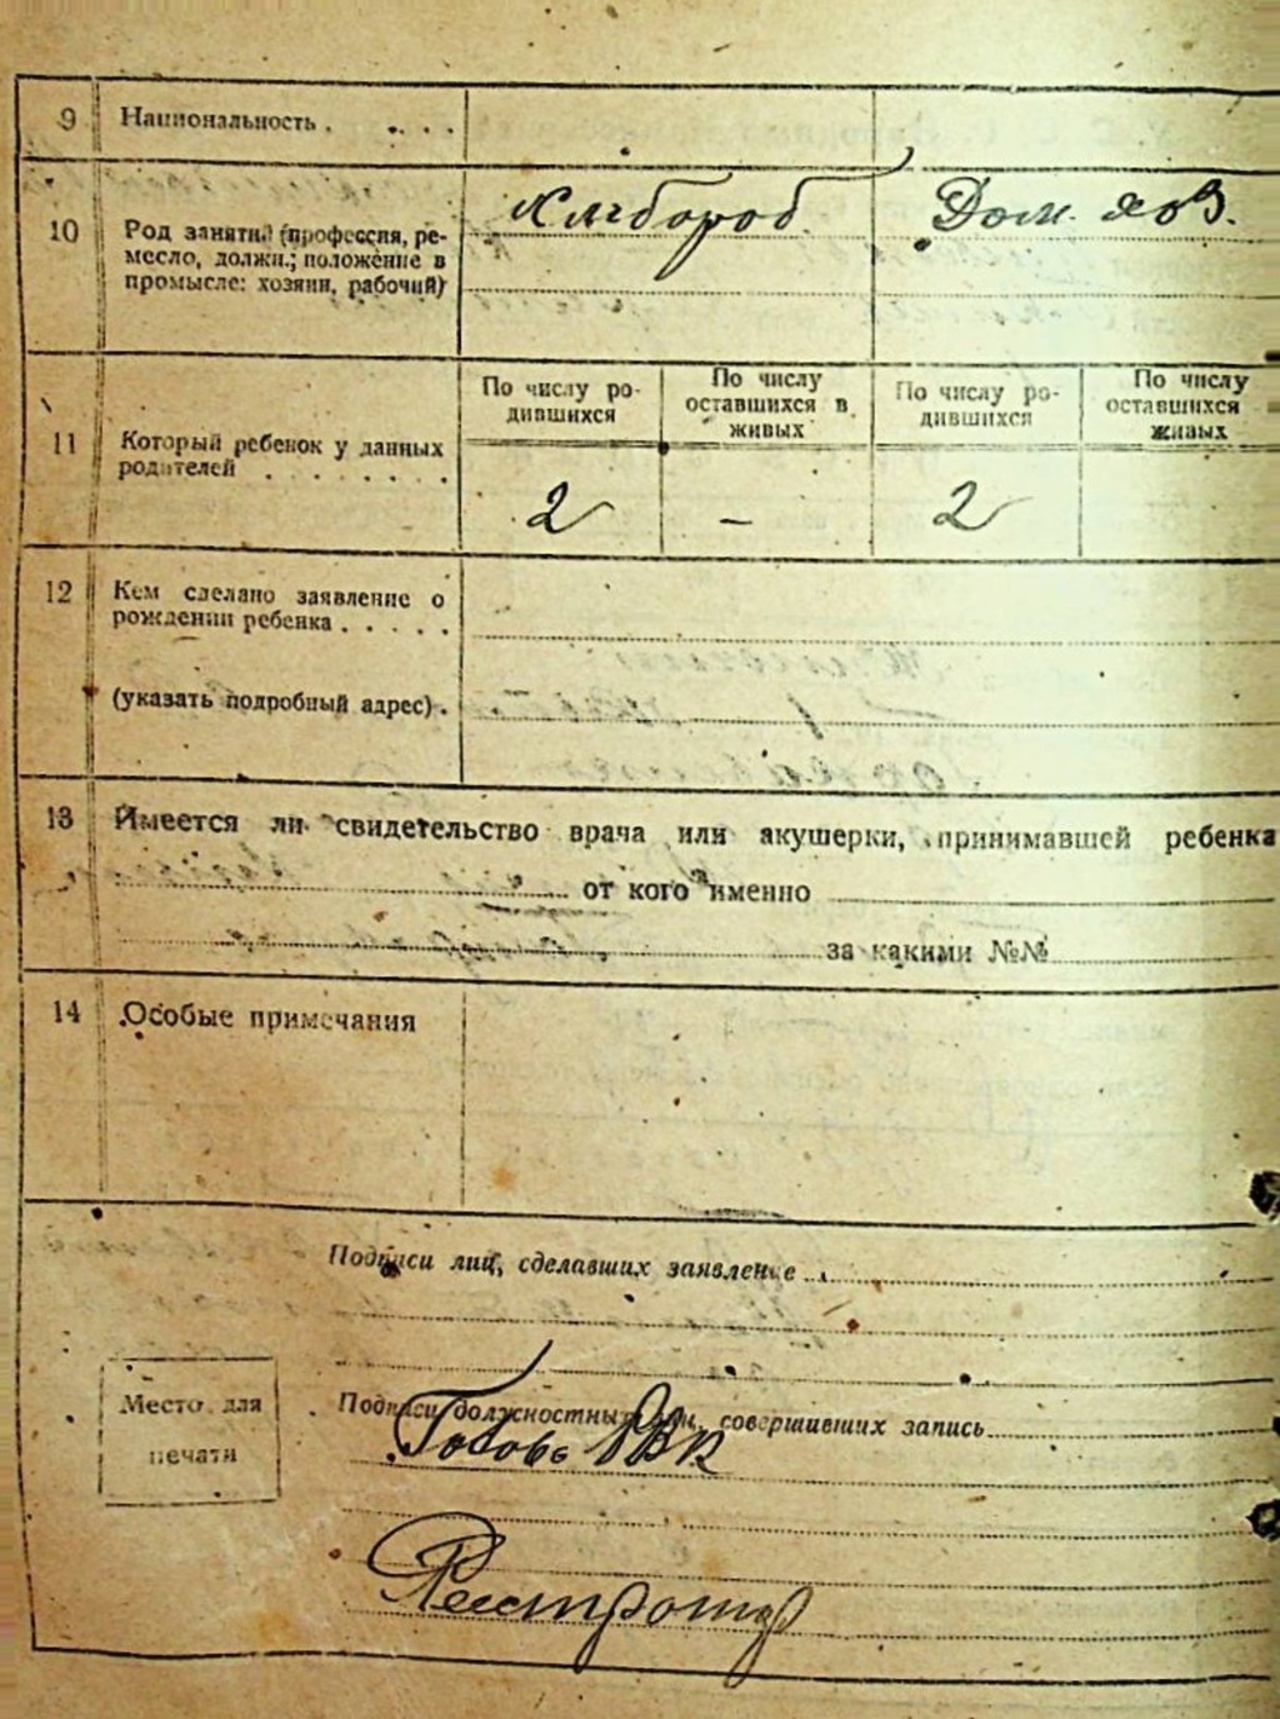 9 Национальность . . . . .
10 Род занятий (профессия, ре-
месло, должн.; положение в
промысле: хозяин, рабочий)
Хлібороб
Дом. хоз.
11 Который ребенок у данных
родителей . . . . . . .
По числу ро-
дившихся
По числу
оставшихся в
живых
По числу ро-
дившихся
По числу
оставшихся
живых
2 – 2
12 Кем сделано заявление о
рождении ребенка . . . . .
(указать подробный адрес) .
13 Имеется ли свидетельство врача или акушерки, принимавшей ребенка
от кого именно
за какими №№
14 Особые примечания
Подписи лиц, сделавших заявление
Место для
печати
Подписи должностных лиц, совершивших запись
Голова